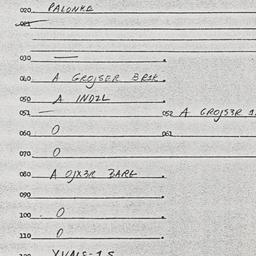 020 PALONKA
021
030 —
040 A GROJSER BRIK
050 A INDZL
051 — 052 A GROJS3R
060 O 061
070 O
080 A OJX3R BARG
090
100 O
110 O